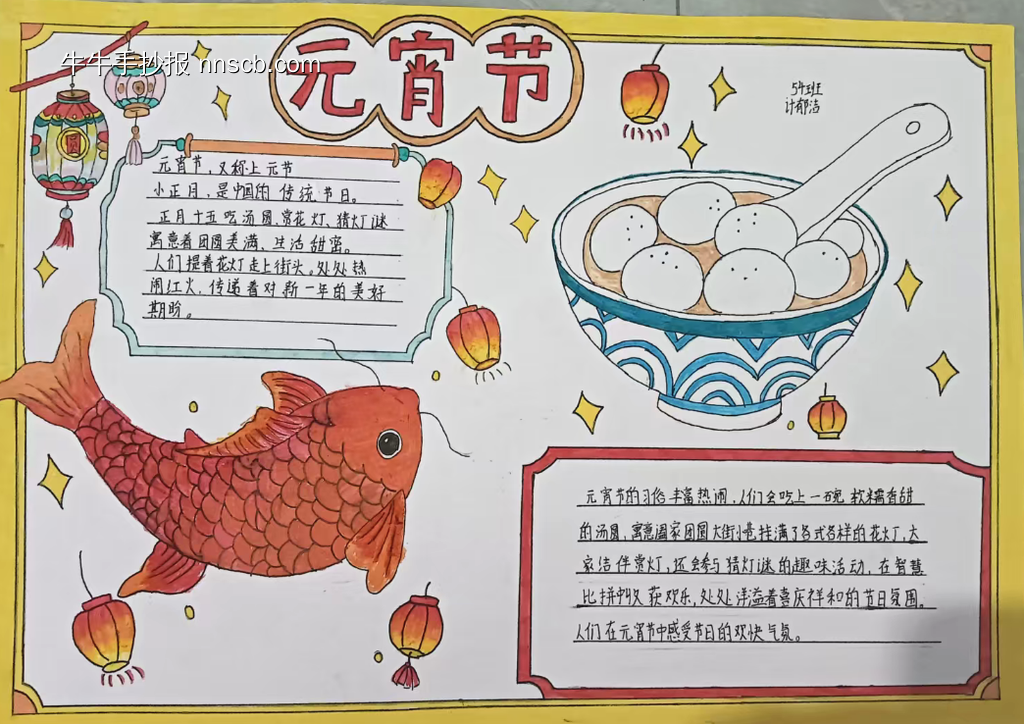 牛牛手抄报 nnscb.com
元宵节
54班
计郁洁
元宵节，又称上元节
小正月，是中国的传统节日。
正月十五吃汤圆、赏花灯、猜灯谜
寓意着团圆美满、生活甜蜜。
人们提着花灯走上街头。处处热
闹红火，传递着对新一年的美好
期盼。
元宵节的习俗丰富热闹，人们会吃上一碗软糯香甜
的汤圆，寓意阖家团圆大街小巷挂满了各式各样的花灯，大
家结伴赏灯，还会参与猜灯谜的趣味活动，在智慧
比拼中收获欢乐，处处洋溢着喜庆祥和的节日氛围。
人们在元宵节中感受节日的欢快气氛。
圆